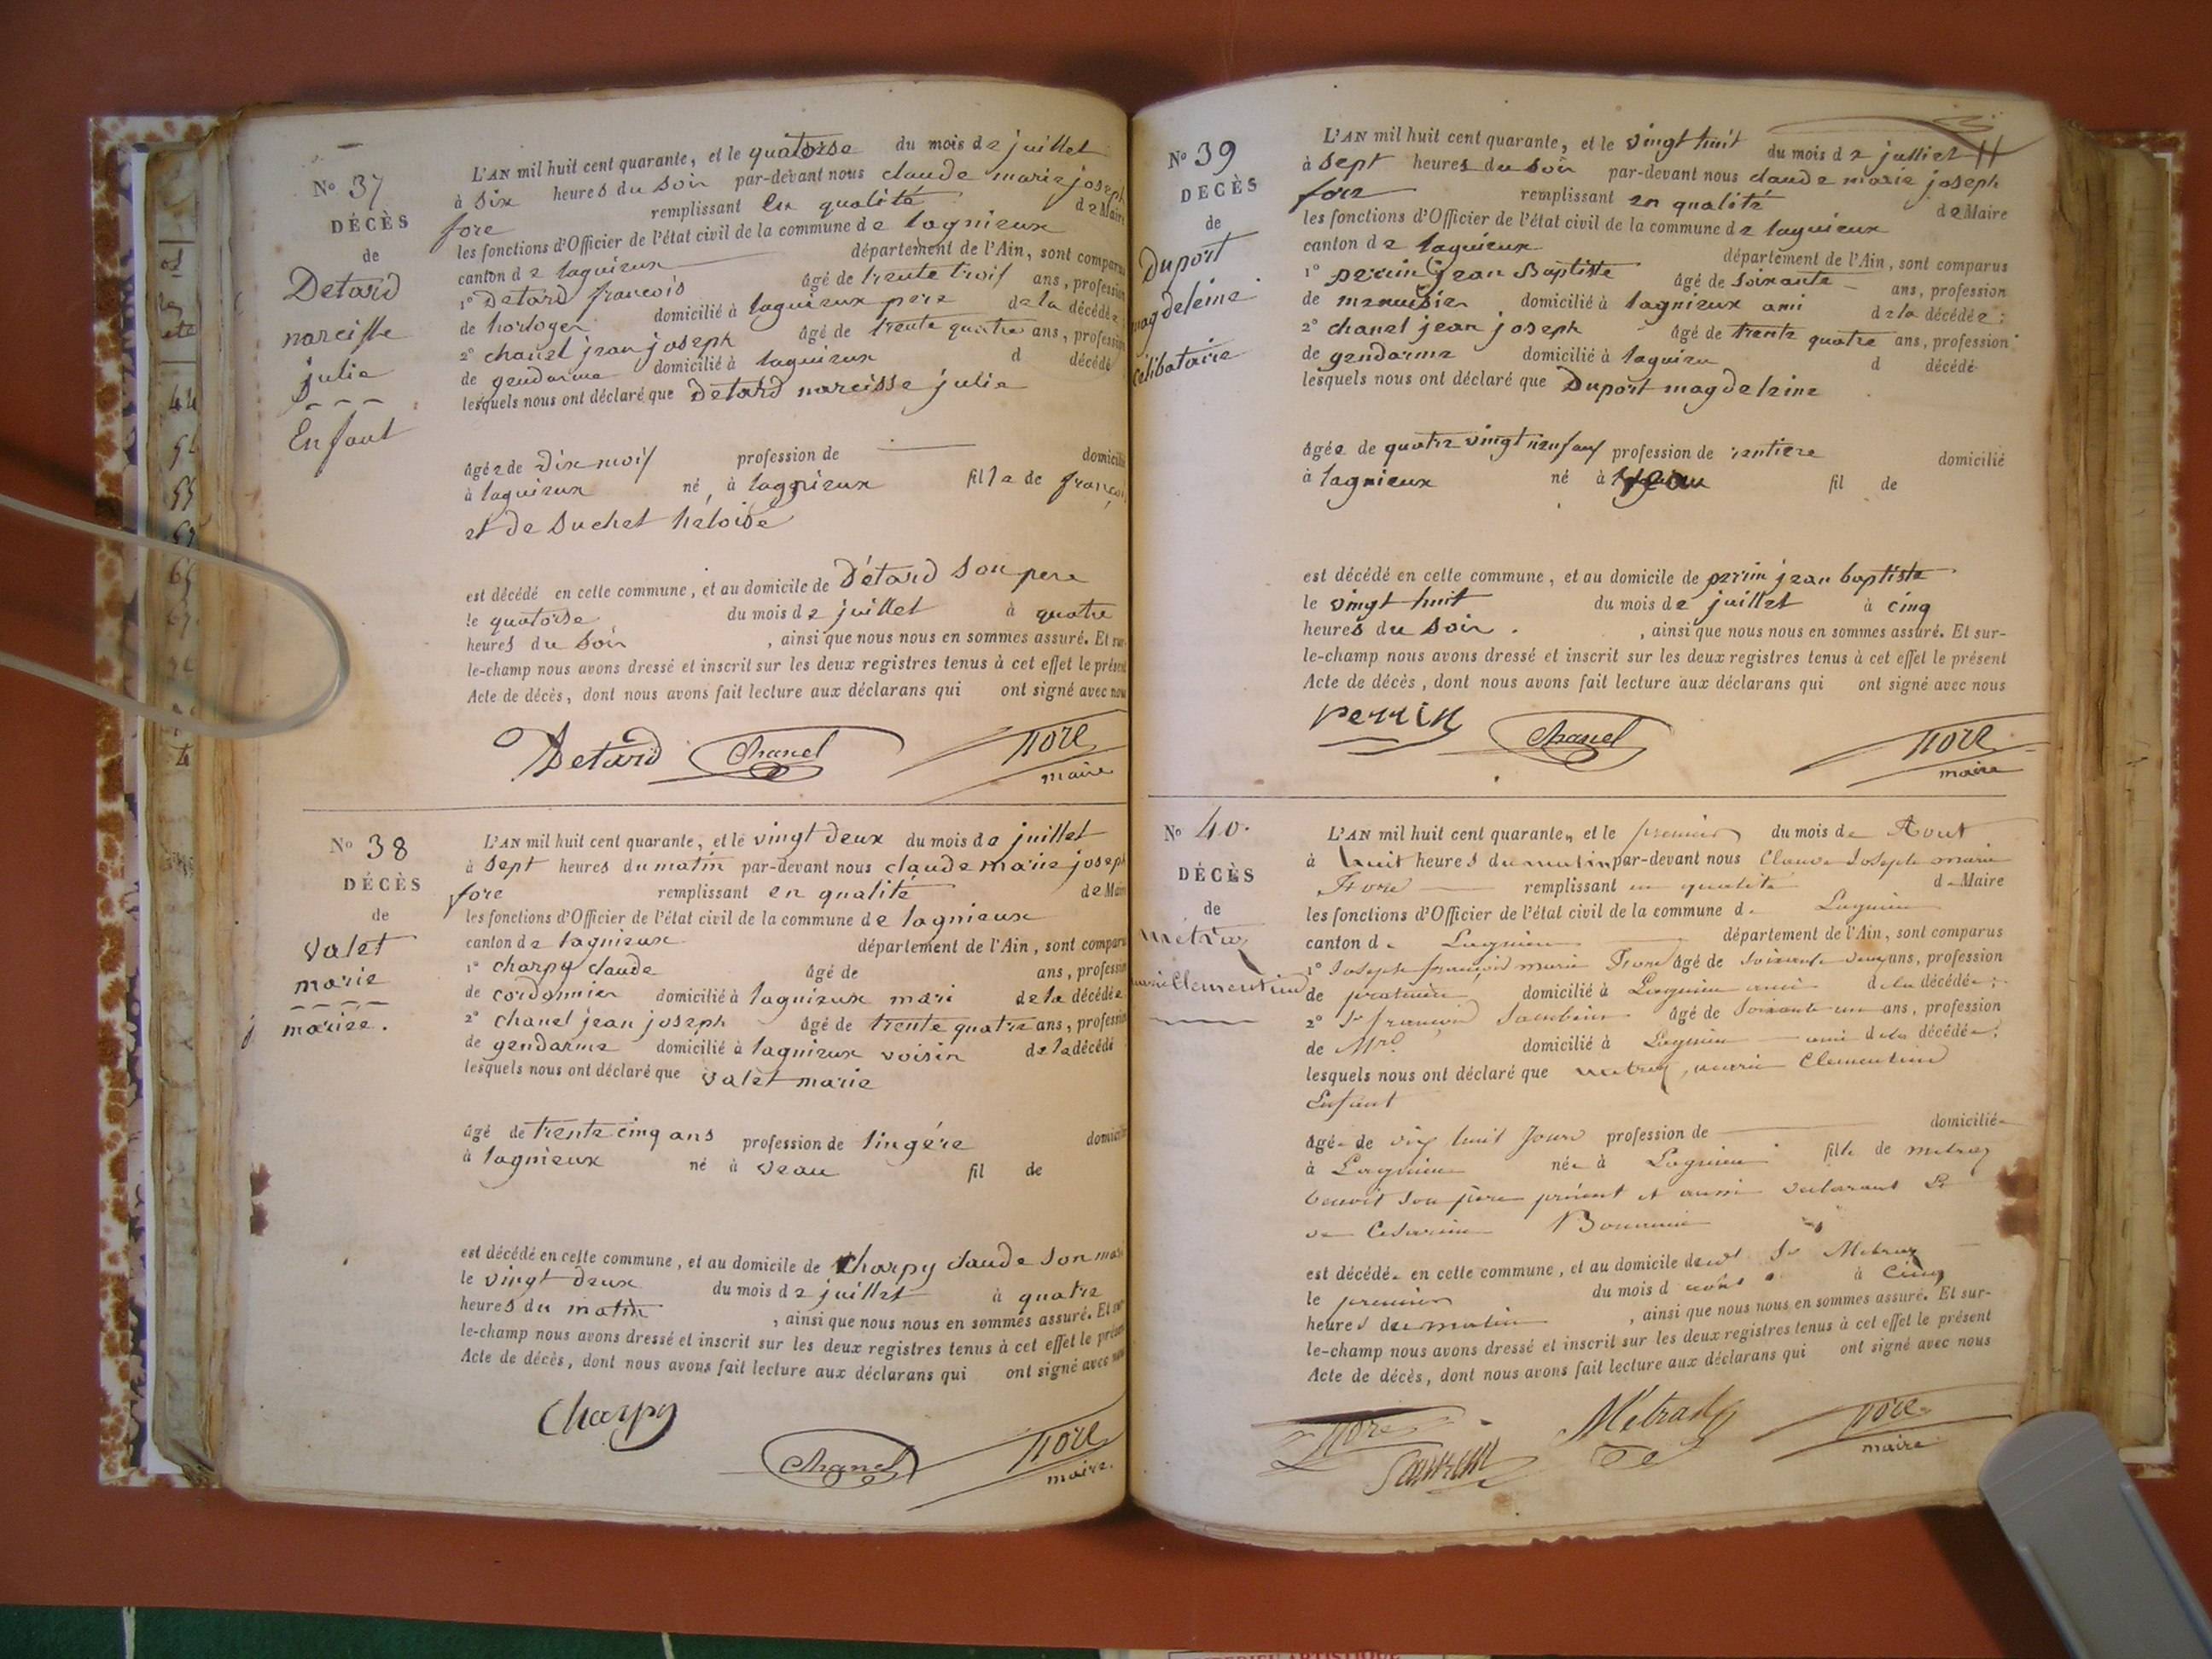 No 37
DÉCÈS
de
Detard
narcisse
julie
Enfant
L'AN mil huit cent quarante, et le quatorse du mois de juillet
à six heures du soir par-devant nous claude marie joseph
fore remplissant en qualité de Maire
les fonctions d'Officier de l'état civil de la commune de lagnieux
canton de lagnieux département de l'Ain, sont comparus
1° Detard francois âgé de trente trois ans, profession
de horloger domicilié à lagnieux pere de la décédée
2° chanel jean joseph âgé de trente quatre ans, profession
de gendarme domicilié à lagnieux d décédé
lesquels nous ont déclaré que Detard narcisse julie
âgée de dix mois profession de domicilié
à lagnieux né à lagnieux fille de françois
et de suchet héloise
est décédé en cette commune, et au domicile de Détard son pere
le quatorse du mois de juillet à quatre
heures du soir, ainsi que nous nous en sommes assuré. Et sur-
le-champ nous avons dressé et inscrit sur les deux registres tenus à cet effet le présent
Acte de décès, dont nous avons fait lecture aux déclarans qui ont signé avec nous
Detard Chanel fore
maire
No 38
DÉCÈS
de
valet
marie
mariée.
L'AN mil huit cent quarante, et le vingt deux du mois de juillet
à sept heures du matin par-devant nous claude marie joseph
fore remplissant en qualité de Maire
les fonctions d'Officier de l'état civil de la commune de lagnieux
canton de lagnieux département de l'Ain, sont comparus
1° charpy claude âgé de ans, profession
de cordonnier domicilié à lagnieux mari de la décédée
2° chanel jean joseph âgé de trente quatre ans, profession
de gendarme domicilié à lagnieux voisin de la décédé
lesquels nous ont déclaré que valet marie
âgé de trente cinq ans profession de lingére domicilié
à lagnieux né à veau fil de
est décédé en cette commune, et au domicile de charpy claude son mari
le vingt deux du mois de juillet à quatre
heures du matin, ainsi que nous nous en sommes assuré. Et sur-
le-champ nous avons dressé et inscrit sur les deux registres tenus à cet effet le présent
Acte de décès, dont nous avons fait lecture aux déclarans qui ont signé avec nous
Charpy
Chanel fore
maire.
No 39
DÉCÈS
de
Duport
magdeleine
celibataire
L'AN mil huit cent quarante, et le vingt huit du mois de julliet
à sept heures du soir par-devant nous claude marie joseph
fore remplissant en qualité de Maire
les fonctions d'Officier de l'état civil de la commune de lagnieux
canton de lagnieux département de l'Ain, sont comparus
1° perrin jean Baptiste âgé de soixante ans, profession
de menuisier domicilié à lagnieux ami de la décédée;
2° chanel jean joseph âgé de trente quatre ans, profession
de gendarme domicilié à lagnieu d décédé
lesquels nous ont déclaré que Duport magdeleine
âgée de quatre vingt neuf ans profession de rentiere domicilié
à lagnieux né à veau fil de
est décédé en cette commune, et au domicile de perrin jean baptiste
le vingt huit du mois de juillet à cinq
heures du soir., ainsi que nous nous en sommes assuré. Et sur-
le-champ nous avons dressé et inscrit sur les deux registres tenus à cet effet le présent
Acte de décès, dont nous avons fait lecture aux déclarans qui ont signé avec nous
perrin Chanel fore
maire
No 40.
DÉCÈS
de
métraz
marie Clementine
L'AN mil huit cent quarante, et le premier du mois de Aout
à huit heures du matin par-devant nous Claude Joseph marie
Fore remplissant en qualité de Maire
les fonctions d'Officier de l'état civil de la commune de Lagnieu
canton de Lagnieu département de l'Ain, sont comparus
1° Joseph françois marie Fore âgé de soixante ans, profession
de domicilié à Lagnieu ami de la décédée;
2° Sr françois âgé de soixante un ans, profession
de domicilié à Lagnieu ami de la décédée;
lesquels nous ont déclaré que metraz, marie Clementine
Enfant
âgée de dix huit jours profession de domiciliée
à Lagnieu née à Lagnieu fille de metraz
benoit son père présent et aussi déclarant Et
de Césarine
est décédée en cette commune, et au domicile dud Sr Metraz
le premier du mois d août à cinq
heures du matin, ainsi que nous nous en sommes assuré. Et sur-
le-champ nous avons dressé et inscrit sur les deux registres tenus à cet effet le présent
Acte de décès, dont nous avons fait lecture aux déclarans qui ont signé avec nous
fore Métraz fore
maire